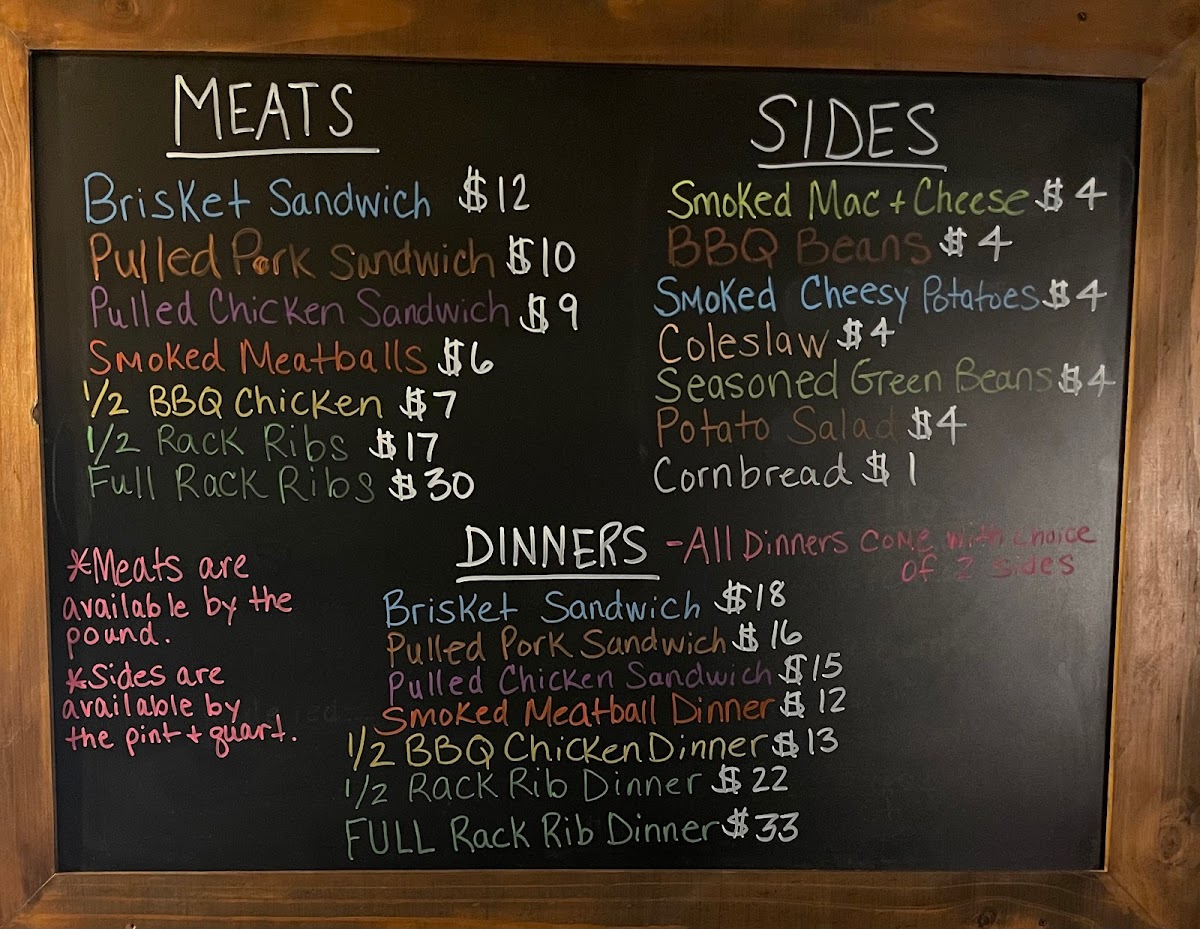 MEATS
Brisket Sandwich $12
Pulled Pork Sandwich $10
Pulled Chicken Sandwich $9
Smoked Meatballs $6
1/2 BBQ Chicken $7
1/2 Rack Ribs $17
Full Rack Ribs $30
SIDES
Smoked Mac + Cheese $4
BBQ Beans $4
Smoked Cheesy Potatoes $4
Coleslaw $4
Seasoned Green Beans $4
Potato Salad $4
Cornbread $1
*Meats are
available by the
pound.
*Sides are
available by
the pint + quart.
DINNERS -All Dinners come with choice
of 2 sides
Brisket Sandwich $18
Pulled Pork Sandwich $16
Pulled Chicken Sandwich $15
Smoked Meatball Dinner $12
1/2 BBQ Chicken Dinner $13
1/2 Rack Rib Dinner $22
FULL Rack Rib Dinner $33